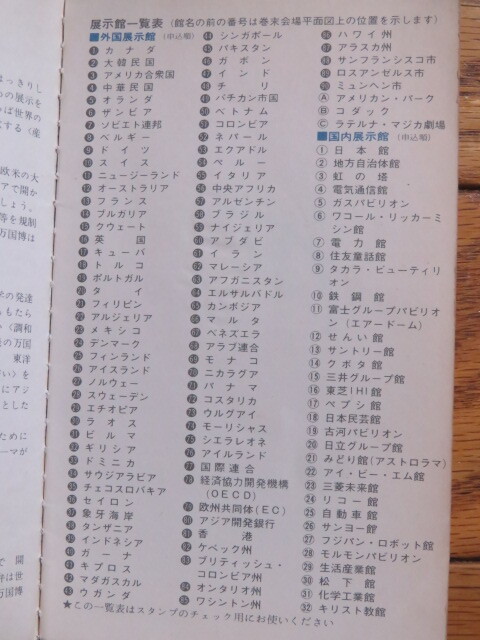 っきりし
の展示を
ば世界の
する〈産
欧米の大
アで開か
しょう。
等を規制
万国博は
の発達
もたら
〈調和
の万国
東洋
い〉を
にアジ
とした
ために
ーマが
で 開
は世
万国博
展示館一覧表(館名の前の番号は巻末会場平面図上の位置を示します)
■外国展示館(申込順)
1 カナダ
2 大韓民国
3 アメリカ合衆国
4 中華民国
5 オランダ
6 ザンビア
7 ソビエト連邦
8 ベルギー
9 ドイツ
10 スイス
11 ニュージーランド
12 オーストラリア
13 フランス
14 ブルガリア
15 クウェート
16 英国
17 キューバ
18 トルコ
19 ポルトガル
20 タイ
21 フィリピン
22 アルジェリア
23 メキシコ
24 デンマーク
25 フィンランド
26 アイスランド
27 ノルウェー
28 スウェーデン
29 エチオピア
30 ラオス
31 ビルマ
32 ギリシア
33 ドミニカ
34 サウジアラビア
35 チェコスロバキア
36 セイロン
37 象牙海岸
38 タンザニア
39 インドネシア
40 ガーナ
41 キプロス
42 マダガスカル
43 ウガンダ
44 シンガポール
45 パキスタン
46 ガボン
47 インド
48 チリ
49 バチカン市国
50 ベトナム
51 コロンビア
52 ネパール
53 エクアドル
54 ペルー
55 イタリア
56 中央アフリカ
57 アルゼンチン
58 ブラジル
59 ナイジェリア
60 アブダビ
61 イラン
62 マレーシア
63 アフガニスタン
64 エルサルバドル
65 カンボジア
66 マルタ
67 ベネズエラ
68 アラブ連合
69 モナコ
70 ニカラグア
71 パナマ
72 コスタリカ
73 ウルグアイ
74 モーリシャス
75 シエラレオネ
76 アイルランド
77 国際連合
78 経済協力開発機構
(OECD)
79 欧州共同体(EC)
80 アジア開発銀行
81 香港
82 ケベック州
83 ブリティッシュ・
コロンビア州
84 オンタリオ州
85 ワシントン州
86 ハワイ州
87 アラスカ州
88 サンフランシスコ市
89 ロスアンゼルス市
90 ミュンヘン市
Ⓐ アメリカン・パーク
Ⓑ コダック
Ⓒ ラテルナ・マジカ劇場
■国内展示館(申込順)
① 日本館
② 地方自治体館
③ 虹の塔
④ 電気通信館
⑤ ガスパビリオン
⑥ ワコール・リッカーミ
シン館
⑦ 電力館
⑧ 住友童話館
⑨ タカラ・ビューティリ
オン
⑩ 鉄鋼館
⑪ 富士グループパビリオ
ン(エアードーム)
⑫ せんい館
⑬ サントリー館
⑭ クボタ館
⑮ 三井グループ館
⑯ 東芝IHI館
⑰ ペプシ館
⑱ 日本民芸館
⑲ 古河パビリオン
⑳ 日立グループ館
㉑ みどり館(アストロラマ)
㉒ アイ・ビー・エム館
㉓ 三菱未来館
㉔ リコー館
㉕ 自動車館
㉖ サンヨー館
㉗ フジパン・ロボット館
㉘ モルモンパビリオン
㉙ 生活産業館
㉚ 松下館
㉛ 化学工業館
㉜ キリスト教館
★この一覧表はスタンプのチェック用にお使いください